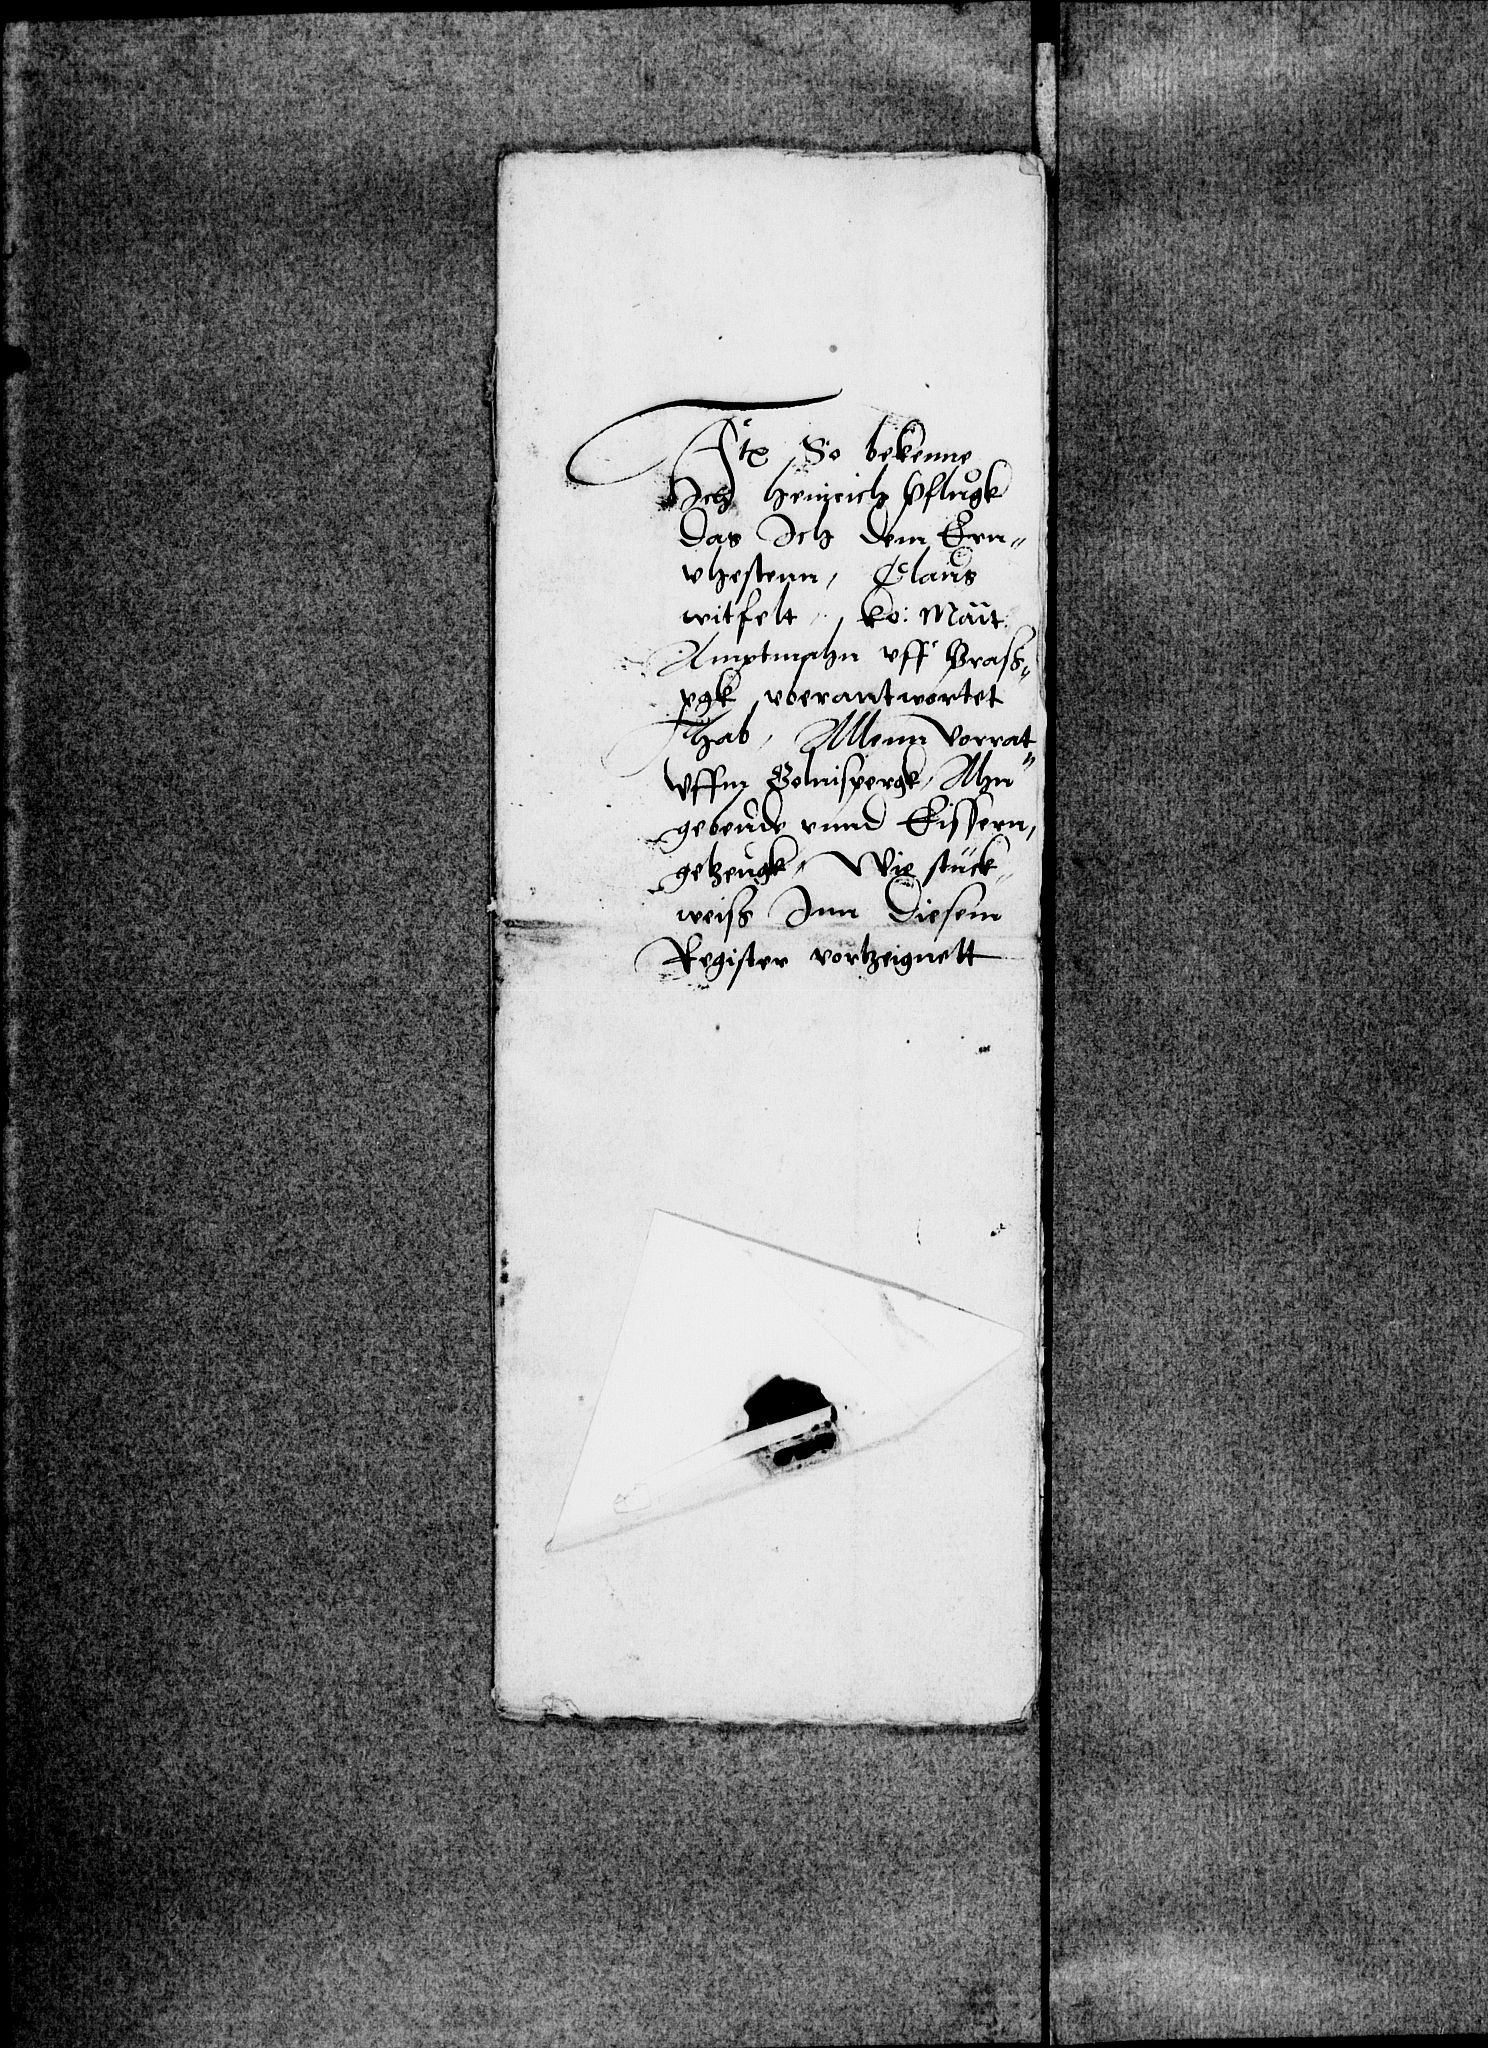 Itẽ So bekenne
Ich heinrich Pflugk
Das Ich dem Ern„
vhestenn, Claus
witfelt, ko: Maït:
Amptmahn vff Brats„
pgk voerantwortet
hab, Allenn Vorrat
Vffm Golnispergk, Ahn„
gebeude vnnd Eissern,
getzeugk, Wie stück„
weiss Inn Diesem
Register vortzeignett